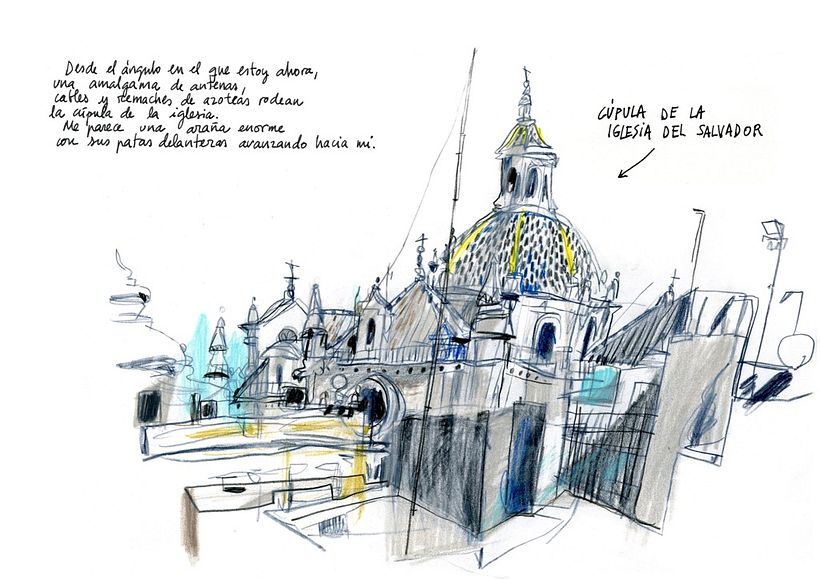 Desde el ángulo en el que estoy ahora,
una amalgama de antenas,
cables y remaches de azoteas rodean
la cúpula de la iglesia.
Me parece una araña enorme
con sus patas delanteras avanzando hacia mí.
CÚPULA DE LA
IGLESIA DEL SALVADOR